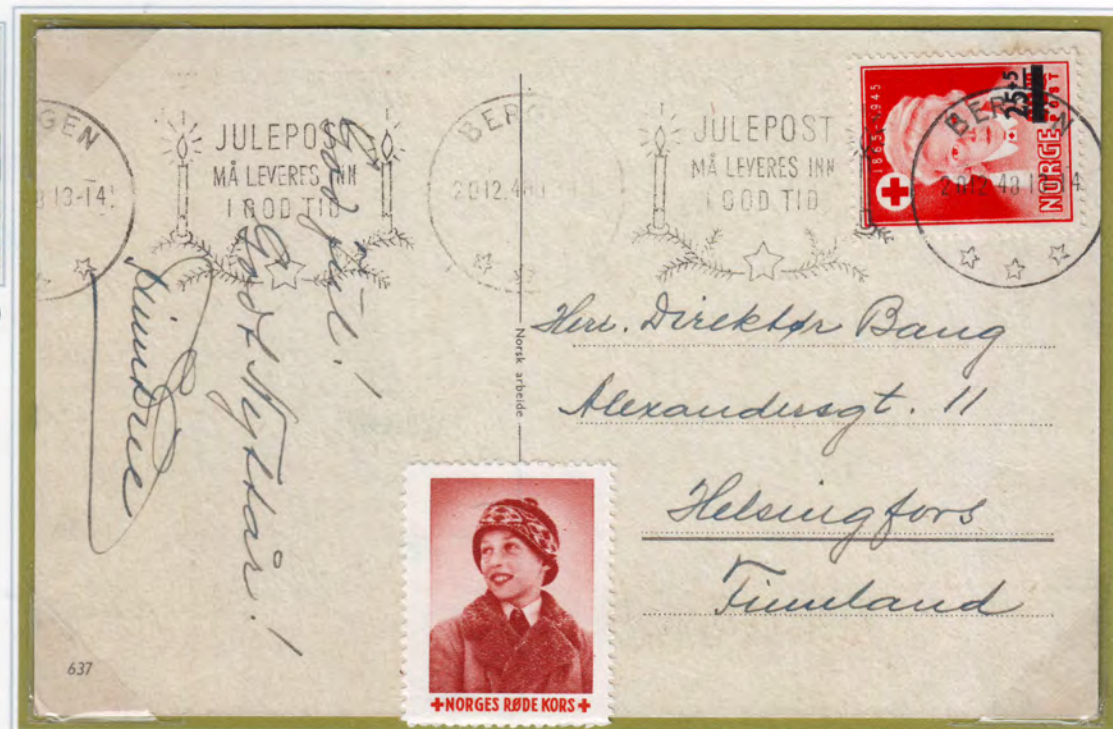 GEN
8 13-14
JULEPOST
MÅ LEVERES INN
I GOD TID
BERG
20 12.48 13
JULEPOST
MÅ LEVERES INN
I GOD TID
BERGEN
20 12 48 13 14
1865-1945
25+5
NORGE
POST
God jul!
Godt Nyttår!
Norsk arbeide
Herr. Direktør Bang
Alexandersgt. 11
Helsingfors
Finnland
637
NORGES RØDE KORS